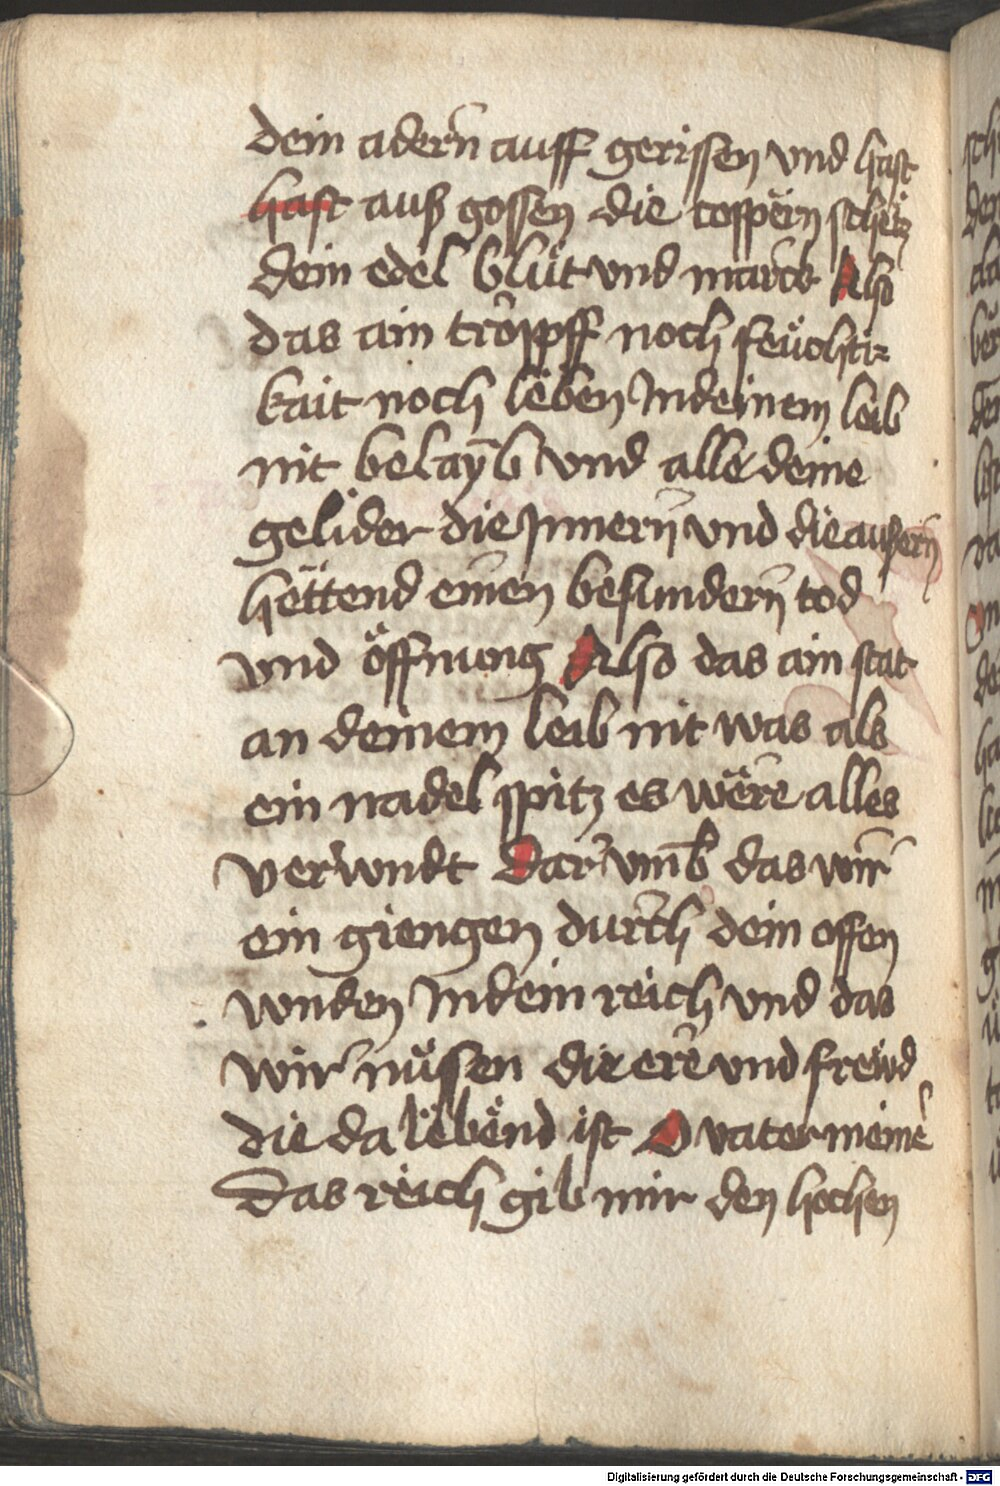 dein adern auff gerissen vnd hast
hast auß gossen die cospërn schëtz
dein edel blüt vnd marck Also
das ain tropff noch feüchti
kait noch lëben In deinem leib
nit belayb vnd alle deine
gelider die Innern vnd die aussern
hëttend einen besundern tod
vnd öffnung Also das ain stat
an deinem leib nit was als
ein nadel spitz es wëre alles
verwndt Dar vmb das wir
ein giengen durch dein offen
wnden In dein reich vnd das
wir nüsen die ere vnd frewd
die da lëbënd ist O vater meine
das reich gib mir den hochen
Digitalisierung gefördert durch die Deutsche Forschungsgemeinschaft - DFG